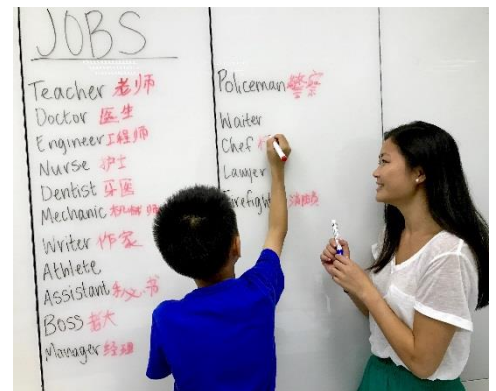 JOBS
Teacher 老师
Doctor 医生
Engineer 工程师
Nurse 护士
Dentist 牙医
Mechanic 机械师
Writer 作家
Athlete
Assistant 秘书
Boss 老大
Manager 经理
Policeman 警察
Waiter
Chef
Lawyer
Firefight 消防员